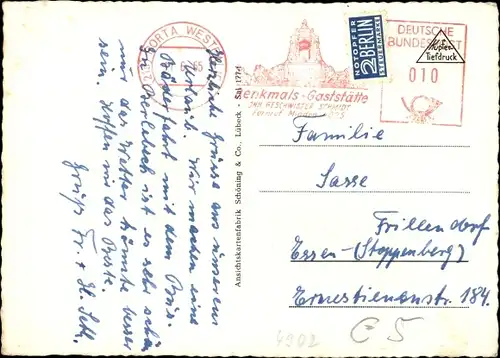 PORTA WESTF
65
Denkmals-Gaststätte
INH. GESCHWISTER SCHMIDT
NOTOPFER
2 BERLIN
STEUERMARKE
DEUTSCHE
BUNDESPOST
010
Kupfer-
Tiefdruck
Herzliche Grüsse aus unserem
Urlaub. Wir machen eine
Bäderfahrt mit dem Bus.
In Berlebeck ist es sehr schön
nur das Wetter könnte besser
sein. Hoffen wir das Beste.
Grüße Fr. + H.
Ansichtskartenfabrik Schöning & Co., Lübeck
Familie
Sasse
Frillendorf
Essen-(Stoppenberg)
Ernestienenstr. 184.
4902
C 5